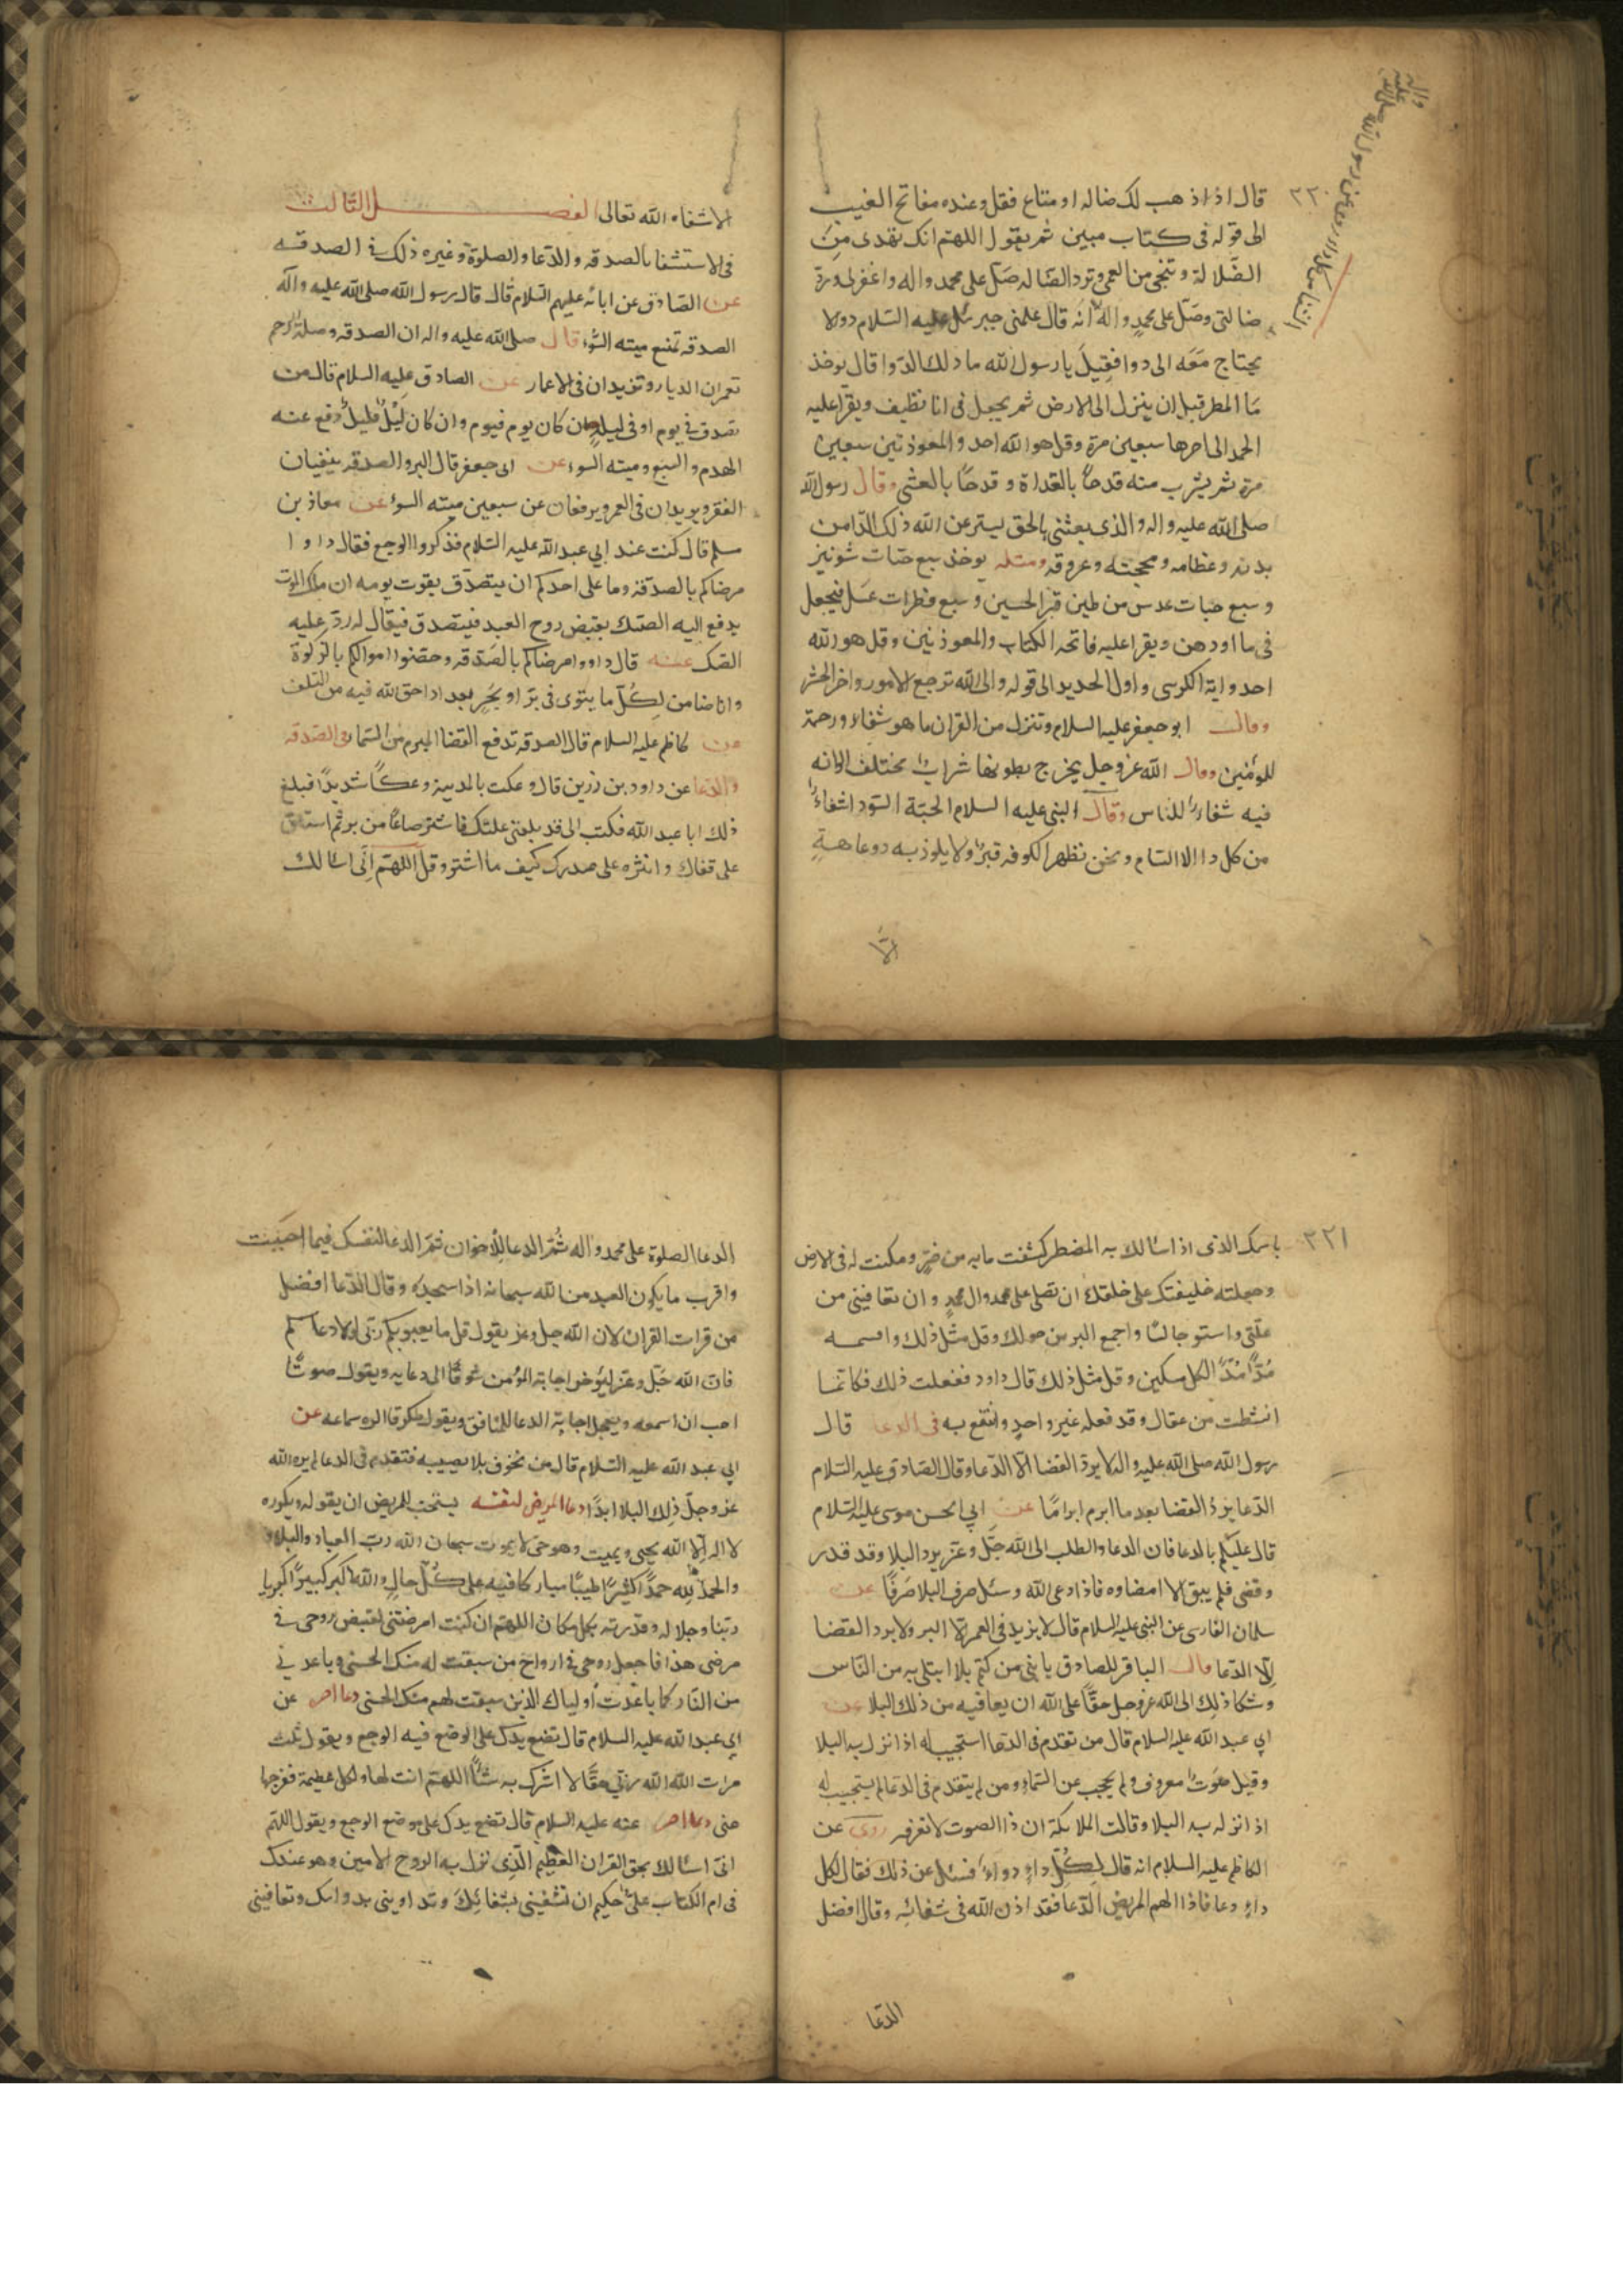 ٢٢٠
قال اذا ذهب لك ضاله او متاع فقل وعنده مفاتح الغيب
الى قوله فى كتاب مبين ثم يقول اللهم انك تهدى من
الضلالة وتنجى من العمى وترد الضاله صل على محمد واله واغفر لى ورد
ضالتى وصل على محمد واله انه قال علمنى جبرئيل عليه السلام دوا لا
يحتاج معه الى دوا فقيل يا رسول الله ما ذلك الدوا قال يوخذ
ما المطر قبل ان ينزل الى الارض ثم يجعل فى انا نظيف ويقرا عليه
الحمد الى اخرها سبعين مرة وقل هو الله احد والمعوذتين سبعين
مرة ثم يشرب منه قدحاً بالغداة و قدحًا بالعشى وقال رسول الله
صلى الله عليه واله والذى بعثنى بالحق ليسترعن الله ذلك الدا من
بدنه وعظامه ومخخته وعروقه ومثله يوخذ سبع حبات شونيز
وسبع حبات عدس من طين قبر الحسين وسبع قطرات عسل فيجعل
فى ما او دهن ويقرا عليه فاتحه الكتاب والمعوذتين وقل هو الله
احد واية الكرسى و اول الحديد الى قوله والى الله ترجع الامور واخر الحشر
وقال ابو جعفر عليه السلام وتنزل من القران ما هو شفاء ورحمة
للمومنين وقال الله عز وجل يخرج من بطونها شراب مختلف الوانه
فيه شفاء للناس وقال النبى عليه السلام الحبة السودا شفاء
من كل دا الا السام ونحن نظهر الكوفه قبر ولا يلوذ به ذو عاهة
الا
الا شفاه الله تعالى الفصل الثالث
فى الاستشفا بالصدقه والدعا والصلوة وغيره ذلك فى الصدقه
عن الصادق عن ابائه عليهم السلام قال قال رسول الله صلى الله عليه واله
الصدقه تمنع ميته السوء قال صلى الله عليه واله ان الصدقه وصلة الرحم
تعمران الديار وتزيدان فى الاعمار عن الصادق عليه السلام قال من
تصدق فى يوم او فى ليلة ان كان يوم فيوم وان كان ليل فليل دفع عنه
الهدم والسبع وميته السوء عن ابى جعفر قال البر والصدقه ينفيان
الفقر ويزيدان فى العمر ويرفعان عن سبعين ميته السوء عن معاذ بن
مسلم قال كنت عند ابي عبد الله عليه السلام فذكروا الوجع فقال داووا
مرضاكم بالصدقة وما على احدكم ان يتصدق بقوت يومه ان ملك الموت
يدفع اليه الصك بقبض روح العبد فيتصدق فيقال له رد عليه
الصك عنه قال داووا مرضاكم بالصدقه وحصنوا اموالكم بالزكوة
وانا ضامن لكل ما يتوى فى بر او بحر بعد ادا حق الله فيه من التلف
عن كاظم عليه السلام قال الصدقه تدفع القضا المبرم من السما فى الصدقه
والدعا عن داود بن زربن قال وعكت بالمدينة وعكًا شديدًا فبلغ
ذلك ابا عبد الله فكتب الى قد بلغنى علتك فاشتر صاعًا من بر ثم استلق
على قفاك وانثره على صدرك كيف ما انتثر وقل اللهم انى اسالك
٣٢١
باسمك الذى اذا سالك به المضطر كشفت ما به من ضر ومكنت له فى الارض
وجعلته خليفتك على خلقك ان تصلى على محمد وال محمد وان تعافينى من
علتى واستو جالسًا واجمع البر من حولك وقل مثل ذلك واقسمه
مُدًّا مُدًّا لكل مسكين وقل مثل ذلك قال داود ففعلت ذلك فكانما
انشطت من عقال وقد فعله غير واحد وانتفع به فى الدعا قال
رسول الله صلى الله عليه واله لا يرد القضا الا الدعا وقال الصادق عليه السلام
الدعا يرد القضا بعد ما ابرم ابرامًا عن ابي الحسن موسى عليه السلام
قال عليكم بالدعا فان الدعا والطلب الى الله جل وعز يرد البلا وقد قدر
وقضى فلم يبق الا امضاوه فاذا دعى الله وسئل صرف البلا صرفًا عن
سلمان الفارسى عن النبى عليه السلام قال لا يزيد فى العمر الا البر ولا يرد القضا
الا الدعا قال الباقر للصادق يا بنى من كتم بلا ابتلى به من الناس
وشكا ذلك الى الله عز وجل حقًّا على الله ان يعافيه من ذلك البلا عن
ابي عبد الله عليه السلام قال من تقدم فى الدعا استجيب له اذا نزل به البلا
وقيل صوت معروف ولم يحجب عن السماء ومن لم يتقدم فى الدعا لم يستجيب له
اذا نزل به البلا وقالت الملائكة ان ذا الصوت لا نعرفه روى عن
الكاظم عليه السلام انه قال لكل داء دواء فسئل عن ذلك فقال لكل
داء دعا فاذا الهم المريض الدعا فقد اذن الله فى شفائه وقال افضل
الدعا
الدعا الصلوة على محمد واله ثم الدعا للاخوان ثم الدعا لنفسك فيما احببت
واقرب ما يكون العبد من الله سبحانه اذا سجد وقال الدعا افضل
من قرات القران لان الله جل وعز يقول قل ما يعبو بكم ربى لولا دعاكم
فان الله جل وعز ليؤخر اجابة المؤمن شوقًا الى دعايه ويقول صوتًا
احب ان اسمعه ويعجل اجابة الدعا للمنافق ويقول صوتًا اكره سماعه عن
ابي عبد الله عليه السلام قال من تخوف بلا يصيبه فتقدم فى الدعا لم يره الله
عز وجل ذلك البلا ابدًا دعا المريض لنفسه يستحب للمريض ان يقوله ويكرره
لا اله الا الله يحيى ويميت وهو حى لا يموت سبحان الله رب العباد والبلاد
والحمد لله حمدًا كثيرًا طيبًا مباركًا فيه على كل حال والله اكبر كبيرًا كبريا
ربنا وجلاله وقدرته بكل مكان اللهم ان كنت امرضتنى لقبض روحى فى
مرضى هذا فاجعل روحى فى ارواح من سبقت له منك الحسنى وباعدنى
من النار كما باعدت اولياك الذين سبقت لهم منك الحسنى دعا اخر عن
ابي عبد الله عليه السلام قال تضع يدك على الموضع فيه الوجع ويقول ثلث
مرات الله الله ربى حقًّا لا اشرك به شئًا اللهم انت لها ولكل عظيمة ففرجها
عنى دعا اخر عنه عليه السلام قال تضع يدك على موضع الوجع ويقول اللهم
انى اسالك بحق القران العظيم الذى نزل به الروح الامين وهو عندك
فى ام الكتاب على حكيم ان تشفينى بشفائك وتداوينى بدوائك وتعافينى